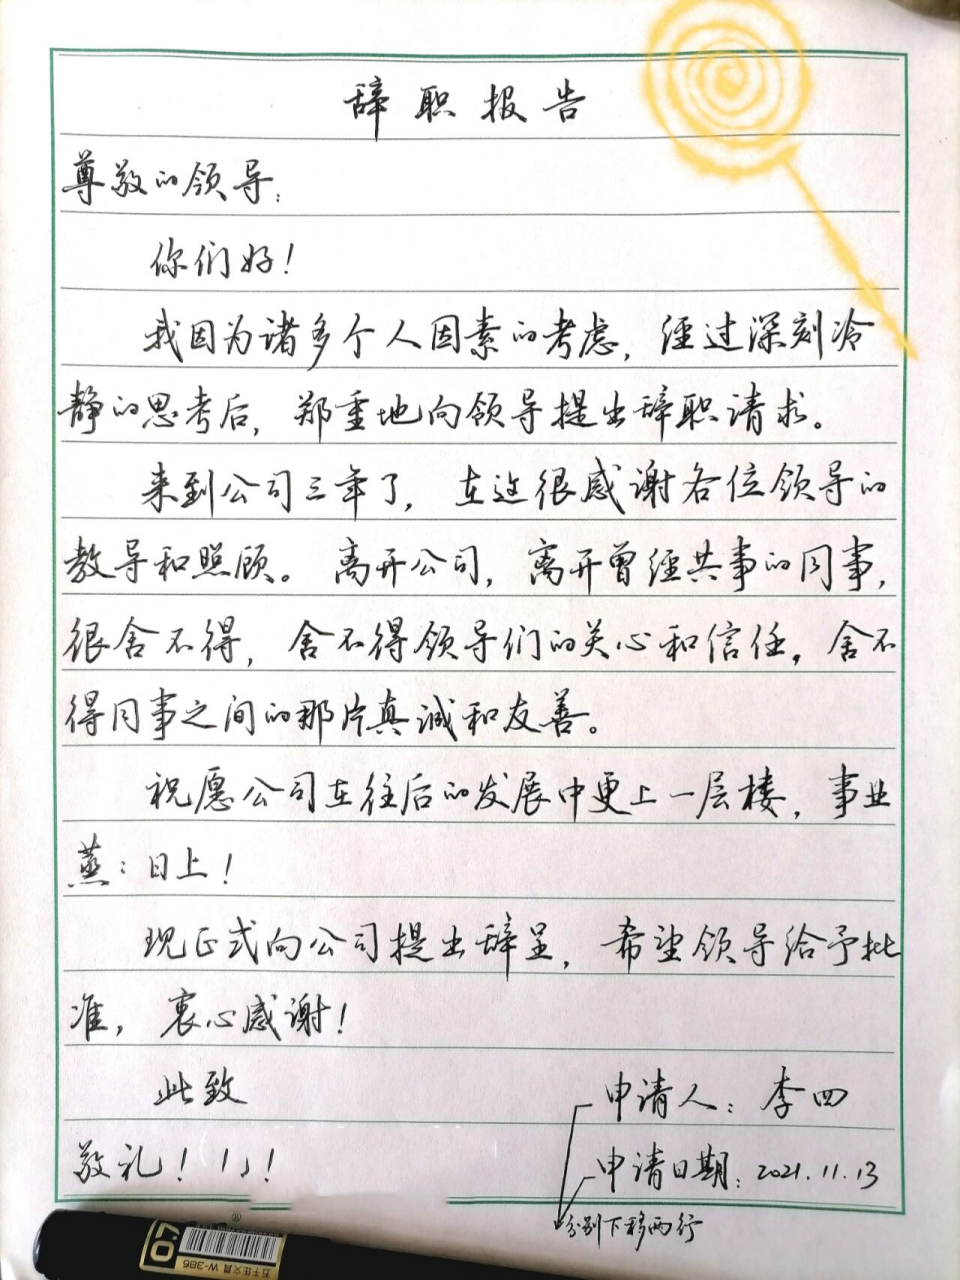 辞职报告
尊敬的领导：
你们好！
我因为诸多个人因素的考虑，经过深刻冷
静的思考后，郑重地向领导提出辞职请求。
来到公司三年了，在这很感谢各位领导的
教导和照顾。离开公司，离开曾经共事的同事，
很舍不得，舍不得领导们的关心和信任，舍不
得同事之间的那片真诚和友善。
祝愿公司在往后的发展中更上一层楼，事业
蒸：日上！
现正式向公司提出辞呈，希望领导给予批
准，衷心感谢！
此致
申请人：李四
敬礼！
申请日期：2021.11.13
分别下移两行
0.7
五千年文具 W-386